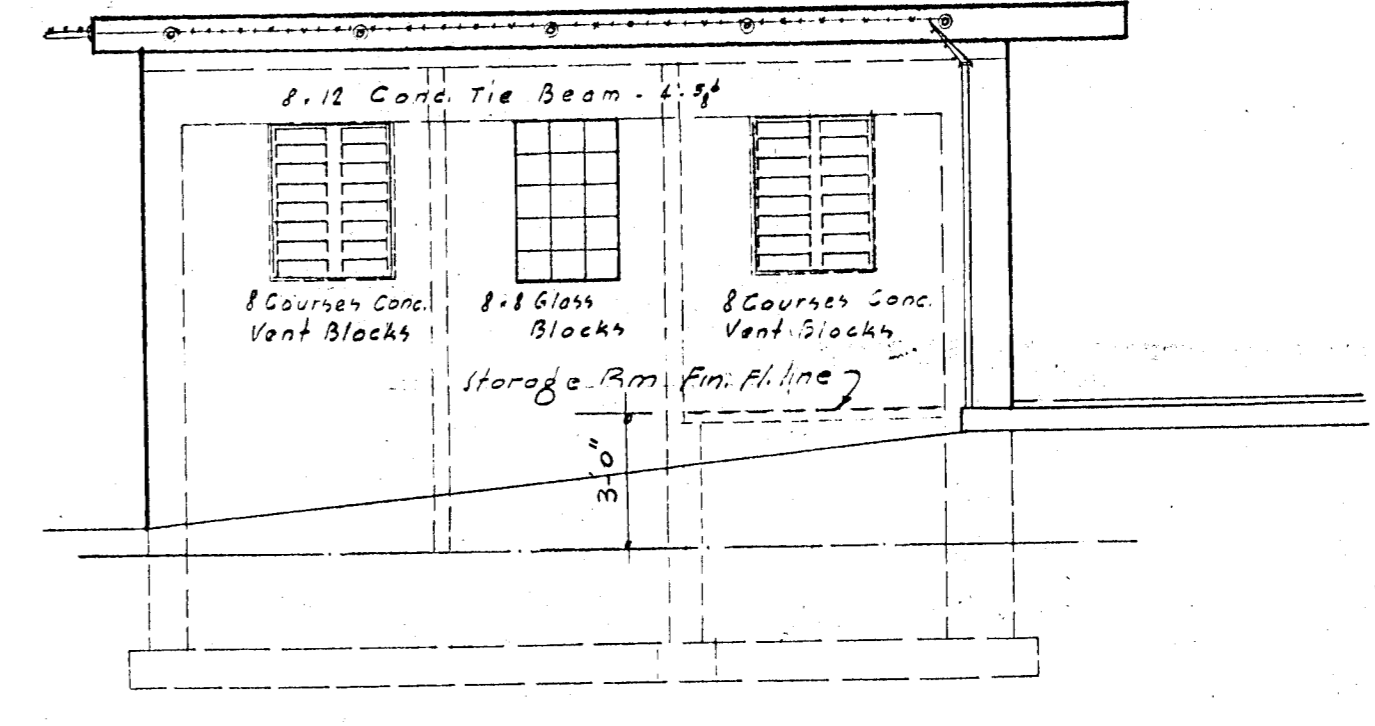 8 . 12 Conc. Tie Beam - 4 - 5/8ᶲ
8 Courses Conc.
Vent Blocks
8 . 8 Glass
Blocks
8 Courses Conc.
Vent Blocks
Storage Rm. Fin. Fl. line
3'-0"